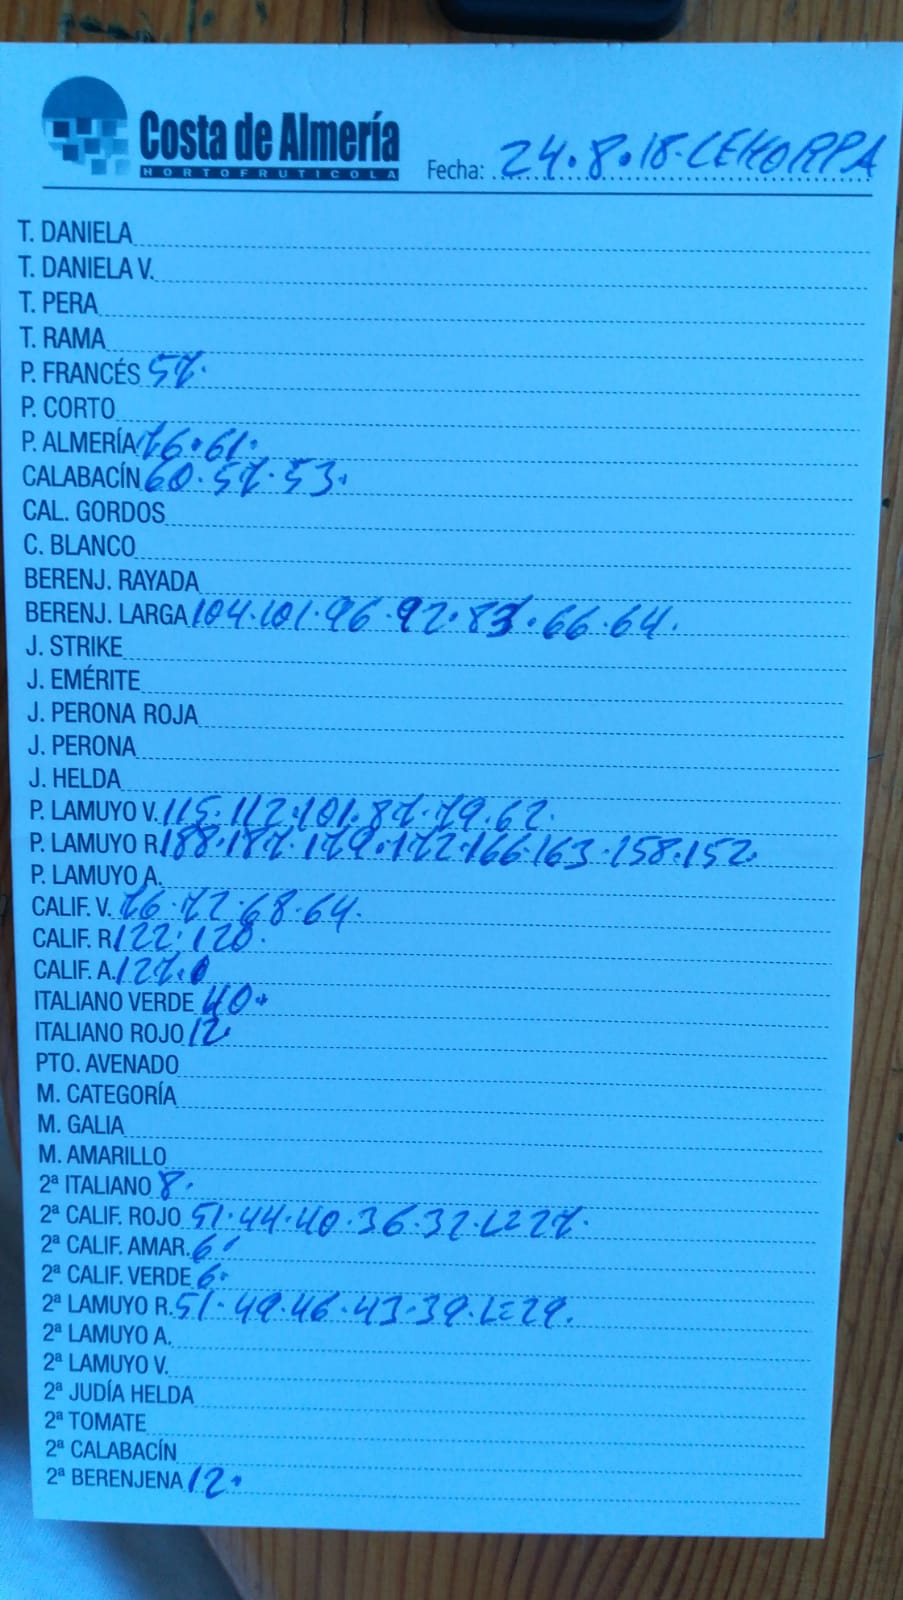 Costa de Almería
HORTOFRUTICOLA
Fecha: 24.8.18. CEHORPA
T. DANIELA
T. DANIELA V.
T. PERA
T. RAMA
P. FRANCÉS 57.
P. CORTO
P. ALMERÍA 76.61.
CALABACÍN 60.57.53.
CAL. GORDOS
C. BLANCO
BERENJ. RAYADA
BERENJ. LARGA 104.101.96.92.83.66.64.
J. STRIKE
J. EMÉRITE
J. PERONA ROJA
J. PERONA
J. HELDA
P. LAMUYO V. 115.112.101.87.79.62.
P. LAMUYO R. 188.187.179.172.166.163.158.152.
P. LAMUYO A.
CALIF. V. 76.72.68.64.
CALIF. R. 122.120.
CALIF. A. 127.
ITALIANO VERDE 40.
ITALIANO ROJO 12.
PTO. AVENADO
M. CATEGORÍA
M. GALIA
M. AMARILLO
2ª ITALIANO 8.
2ª CALIF. ROJO 51.44.40.36.32.L=27.
2ª CALIF. AMAR. 6.
2ª CALIF. VERDE 6.
2ª LAMUYO R. 51.49.46.43.39.L=29.
2ª LAMUYO A.
2ª LAMUYO V.
2ª JUDÍA HELDA
2ª TOMATE
2ª CALABACÍN
2ª BERENJENA 12.